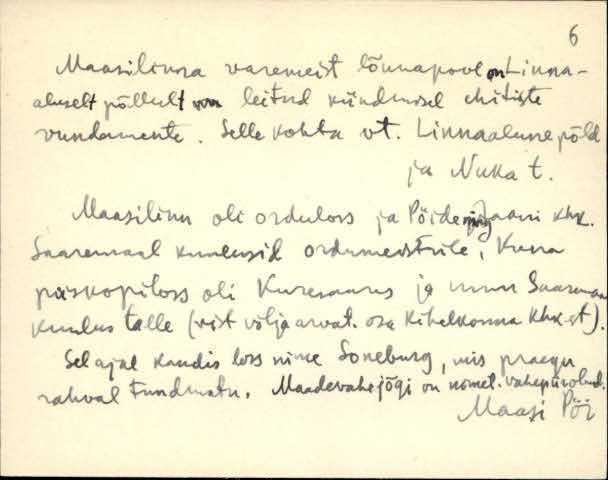 6
Maasilinna varemeist lõunapool on Linna-
aluselt põllult leitud kündmisel ehitiste
vundamente. Selle kohta vt. Linnaalune põld
ja Nuka t.
Maasilinn oli orduloss ja Pöide ning Jaani khk.
Saaremaal kuulusid ordumeistrile, kuna
piiskopiloss oli Kuresaares ja muu Saaremaa
kuulus talle (vist välja arvat. osa Kihelkonna khk-st).
Sel ajal kandis loss nime Soneburg, mis praegu
rahval tundmatu. Maadevahejõgi on nimet. vahepiir olnud.
Maasi Pöi